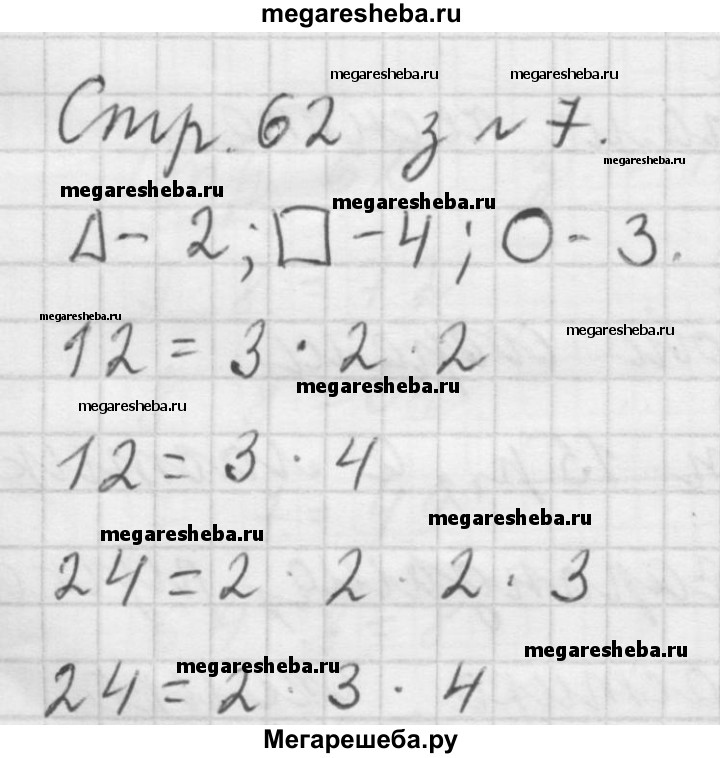 megaresheba.ru
megaresheba.ru megaresheba.ru
Стр. 62 з № 7.
megaresheba.ru
megaresheba.ru megaresheba.ru
Δ - 2 ; □ - 4 ; ○ - 3.
megaresheba.ru megaresheba.ru
12 = 3 · 2 · 2
megaresheba.ru
megaresheba.ru
12 = 3 · 4
megaresheba.ru megaresheba.ru
24 = 2 · 2 · 2 · 3
megaresheba.ru
megaresheba.ru
24 = 2 · 3 · 4
Мегарешеба.ру